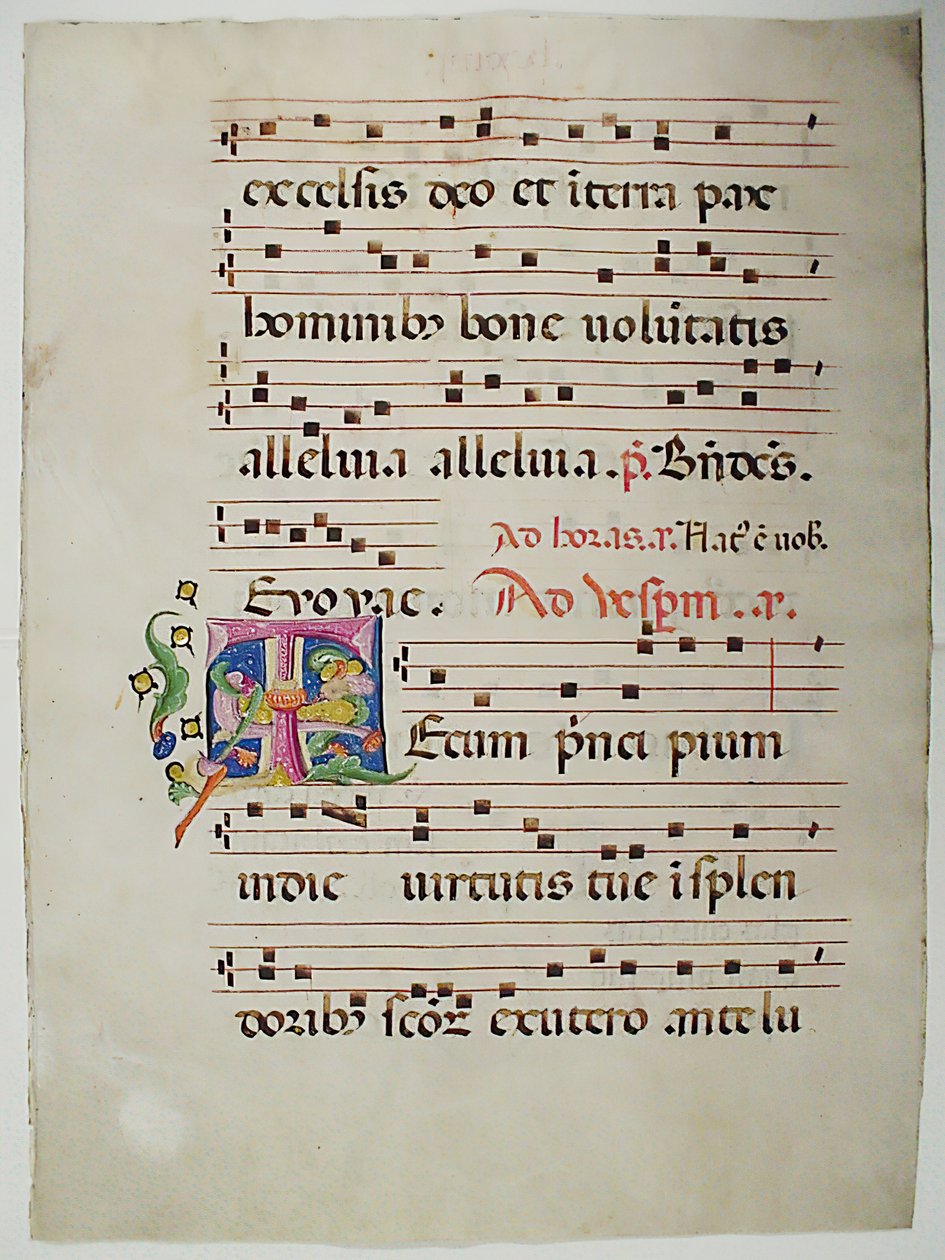 excelsis deo et ĩ terra pax
hominibꝫ bone uolũtatis
alleluia alleluia. p̃. Bñdcs̃.
Ad horas. a. Natꝰ ẽ uob̃.
Evovae. Ad vesp̃m. a.
TEcum p̃nci pium
in die uirtutis tue ĩ splen
doribꝫ scõꝝ ex utero ante lu